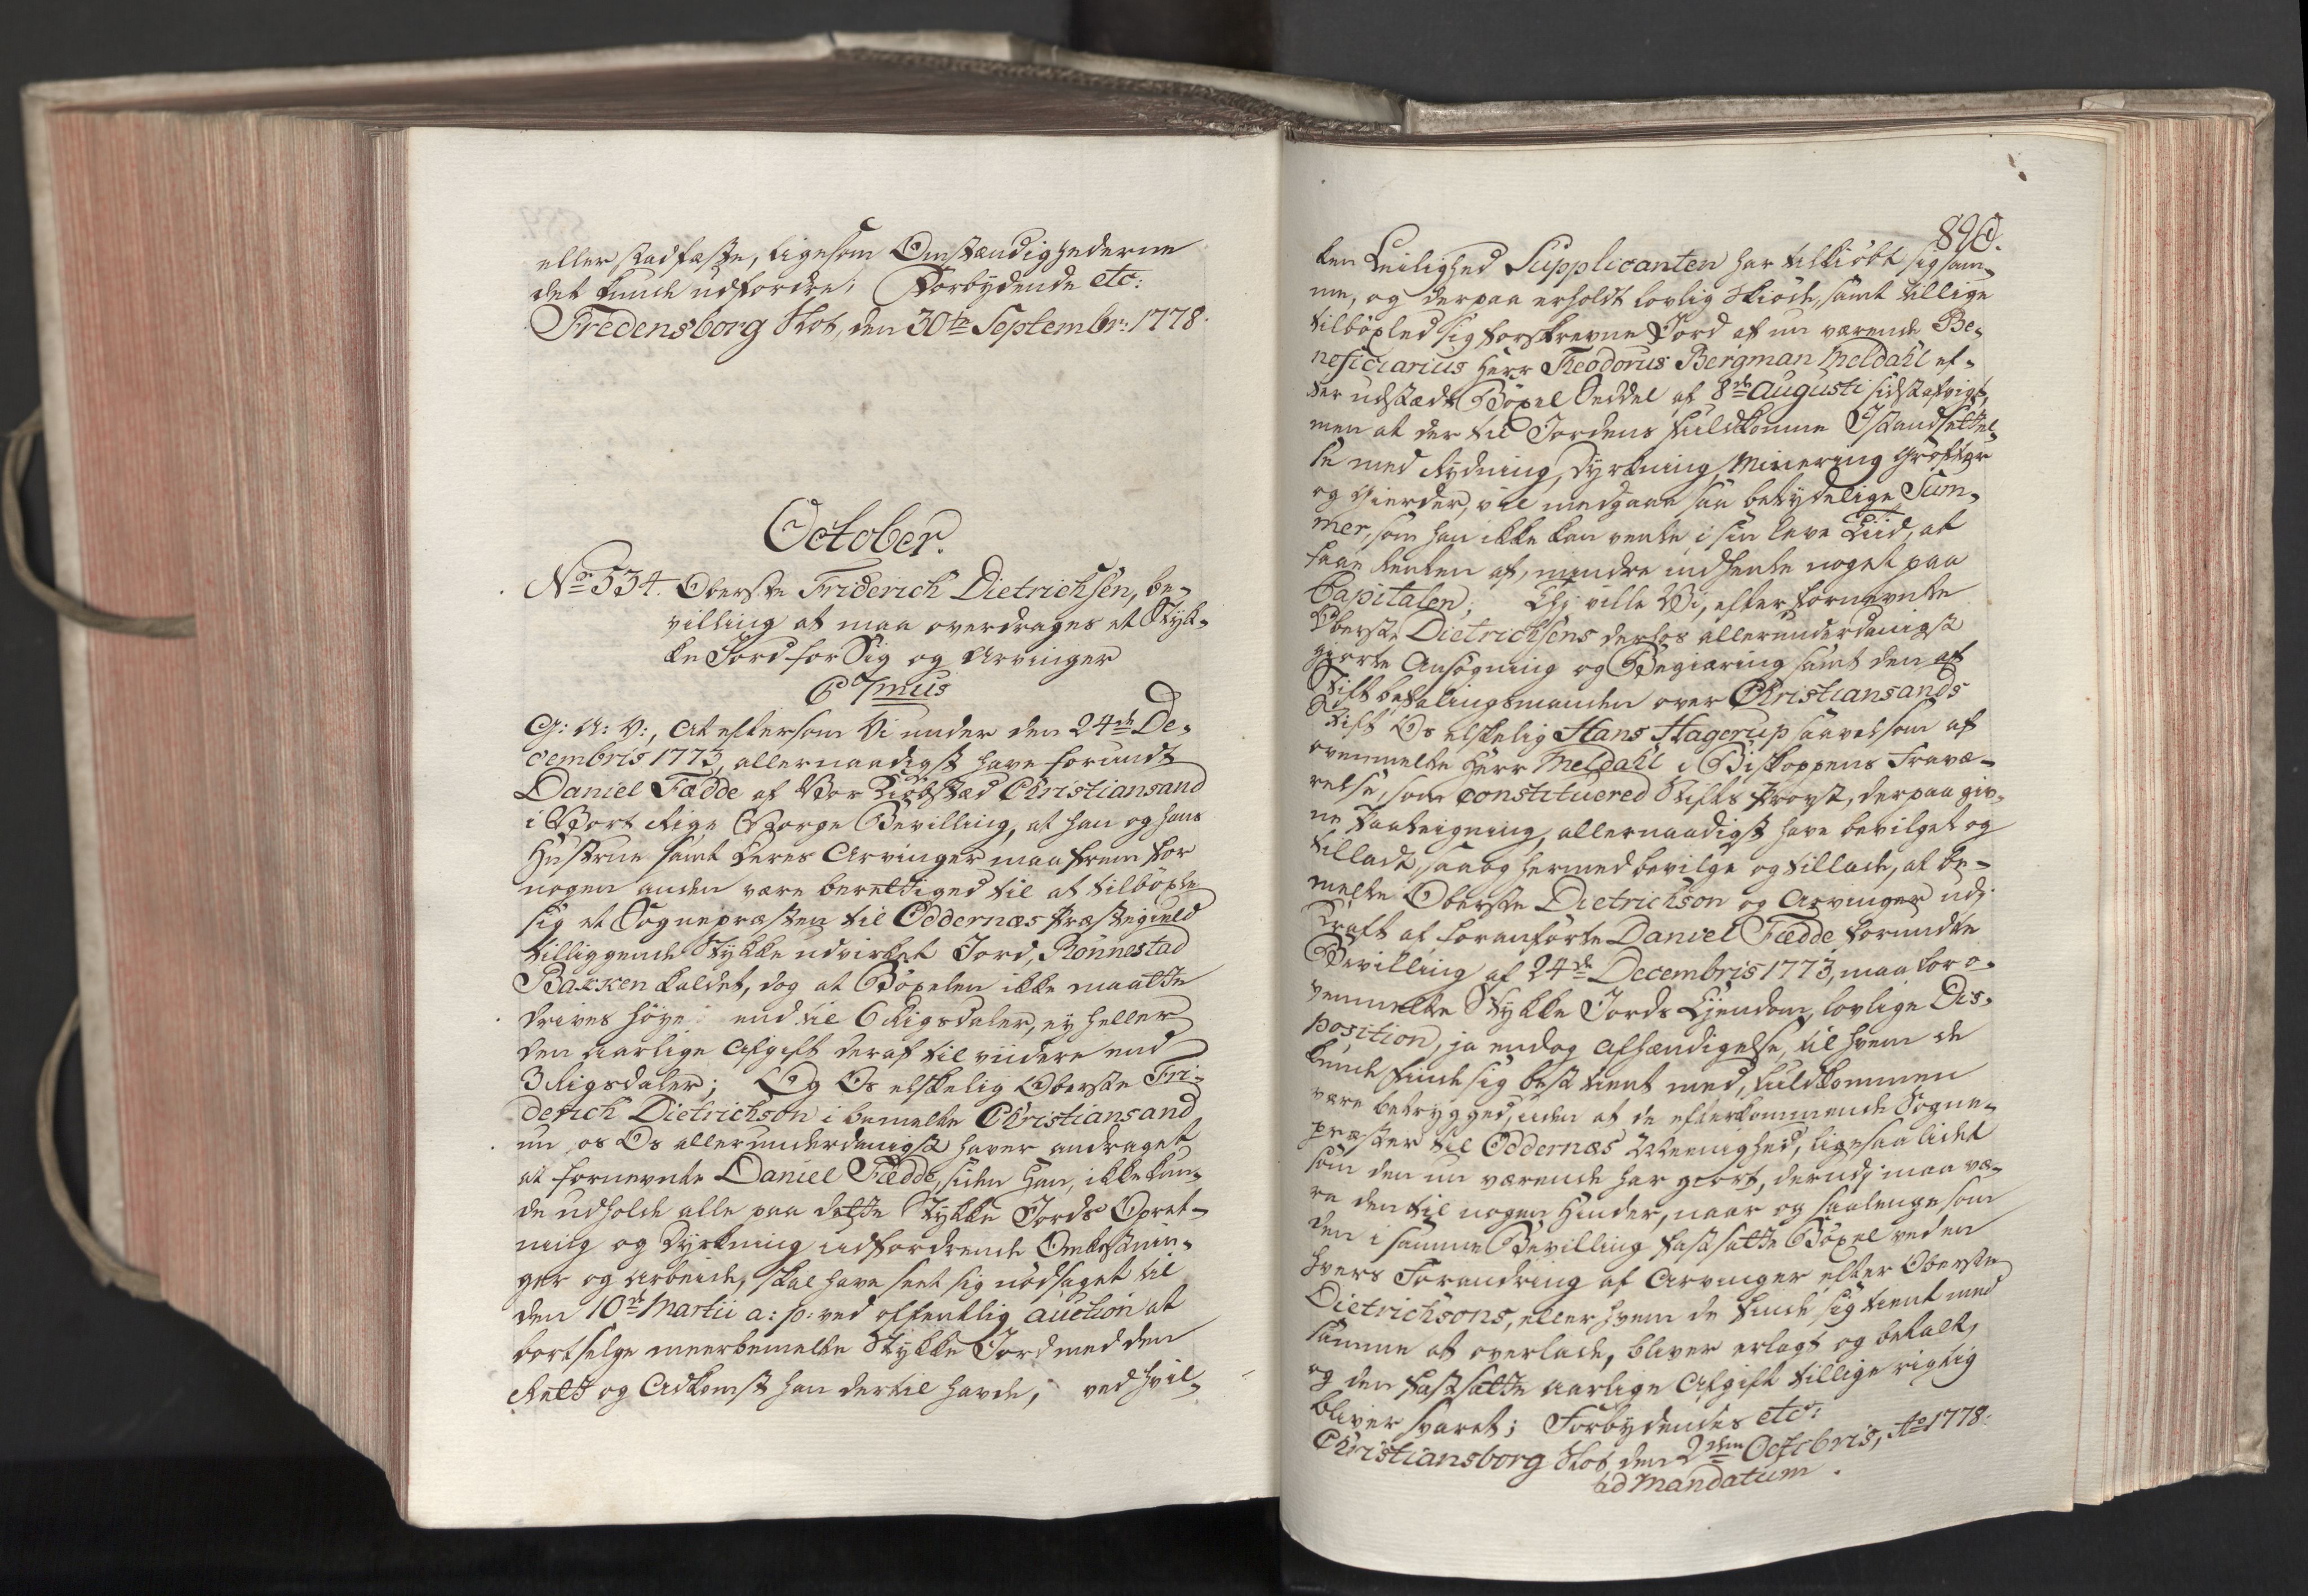 eller stadfæste, ligesom Omstændighederne
det kunde udfordre; Forbydende etc:
Fredensborg Slot, den 30te Septembr: 1778.
October.
No 534. Oberste Friderich Dietrichsen, be-
villing at maa overdrages et Styk-
ke Jord for Sig og Arvinger
C 7mus
G: A: V:, At eftersom Vi under den 24de De-
cembris 1773, allernaadigst have forundt
Daniel Fædde af Vor Kiøbstæd Christiansand
i Vort Rige Norge Bevilling, at han og hans
Hustrue samt deres Arvinger maa frem for
nogen anden være berettiged til at tilböxle
sig et Sognepræsten til Oddernæs Præstegield
tilliggende Stykke udvirket Jord, Rönnestad
Bakken kaldet, dog at Böxelen ikke maatte
drives höye end til 6 Rigsdaler, ey heller
den aarlige Afgift deraf til viidere end
3 Rigsdaler; Og Os elskelig Oberste Fri-
derich Dietrichson i bemelte Christiansand
nu os Os allerunderdanigst haver andraget
at fornevnte Daniel Fædde, siden Han, ikke kun-
de udholde alle paa dette Stykke Jords Opret-
ning og Dyrkning udfordrende Omkostnin-
ger og Arbeide, skal have seet sig nödsaget til
den 10de Martii a: p: ved offentlig auction at
bortselge meerbemelte Stykke Jord med den
Rett og Adkomst han dertil havde; ved hvil-
896.
ken Leilighed Supplicanten har tilkiöbt sig sam-
me, og derpaa erholdt lovlig Skiöde, samt tillige
tilböxled sig forskrevne Jord af nu værende Be-
neficiarius Herr Theodorus Bergman Meldahl ef-
ter udstædt Böxel Seddel af 8de Augusti sidstafvigt,
men at der til Jordens fuldkomne Istandsettel-
se med Rydning, Dyrkning, Minering Gröfter
og Gierder, vil medgaae saa betydelige Sum-
mer, som han ikke kan vente i sin Leve Tiid, at
faae Renten af, mindre indhente noget paa
Capitalen; Thi ville Vi, efter fornevnte
Oberste Dietrichsens derfor allerunderdanigst
giorte Ansögning og Begiæring samt den af
Stiftbefalingsmanden over Christiansands
Stift Os elskelig Hans Hagerup saavelsom af
ovenmelte Herr Meldahl i Biskoppens Fravæ-
relse, som constituered Stifts Provst, derpaa giv-
ne Paategning, allernaadigst have bevilget og
tilladt, saa og hermed bevilge og tillade, at be-
melte Oberste Dietrichson og Arvinger udi
Kraft af foranförte Daniel Fædde forundte
Bevilling af 24de Decembris 1773, maa for o-
venmelte Stykke Jords Ejendom, lovlige Dis-
position, ja endog Afhændigelse, til hvem de
kunde finde sig best tient med, fuldkommen
være betrygged, uden at de efterkommende Sogne-
præster til Oddernæs Meenighed, ligesaa lidet
som den nu værende har giort, derudi maa væ-
re den til nogen Hinder, naar og saalenge som
den i samme Bevilling fastsatte Böxel ved en
hvers Forandring af Arvinger, efter Oberste
Dietrichsons, eller hvem de finde sig tient med
samme at overlade, bliver erlagt og betalt,
og den fastsatte aarlige Afgift tillige rigtig
bliver svaret; Forbydendes etc:
Christiansborg Slot den 2den Octobris, Ao 1778.
ad Mandatum.